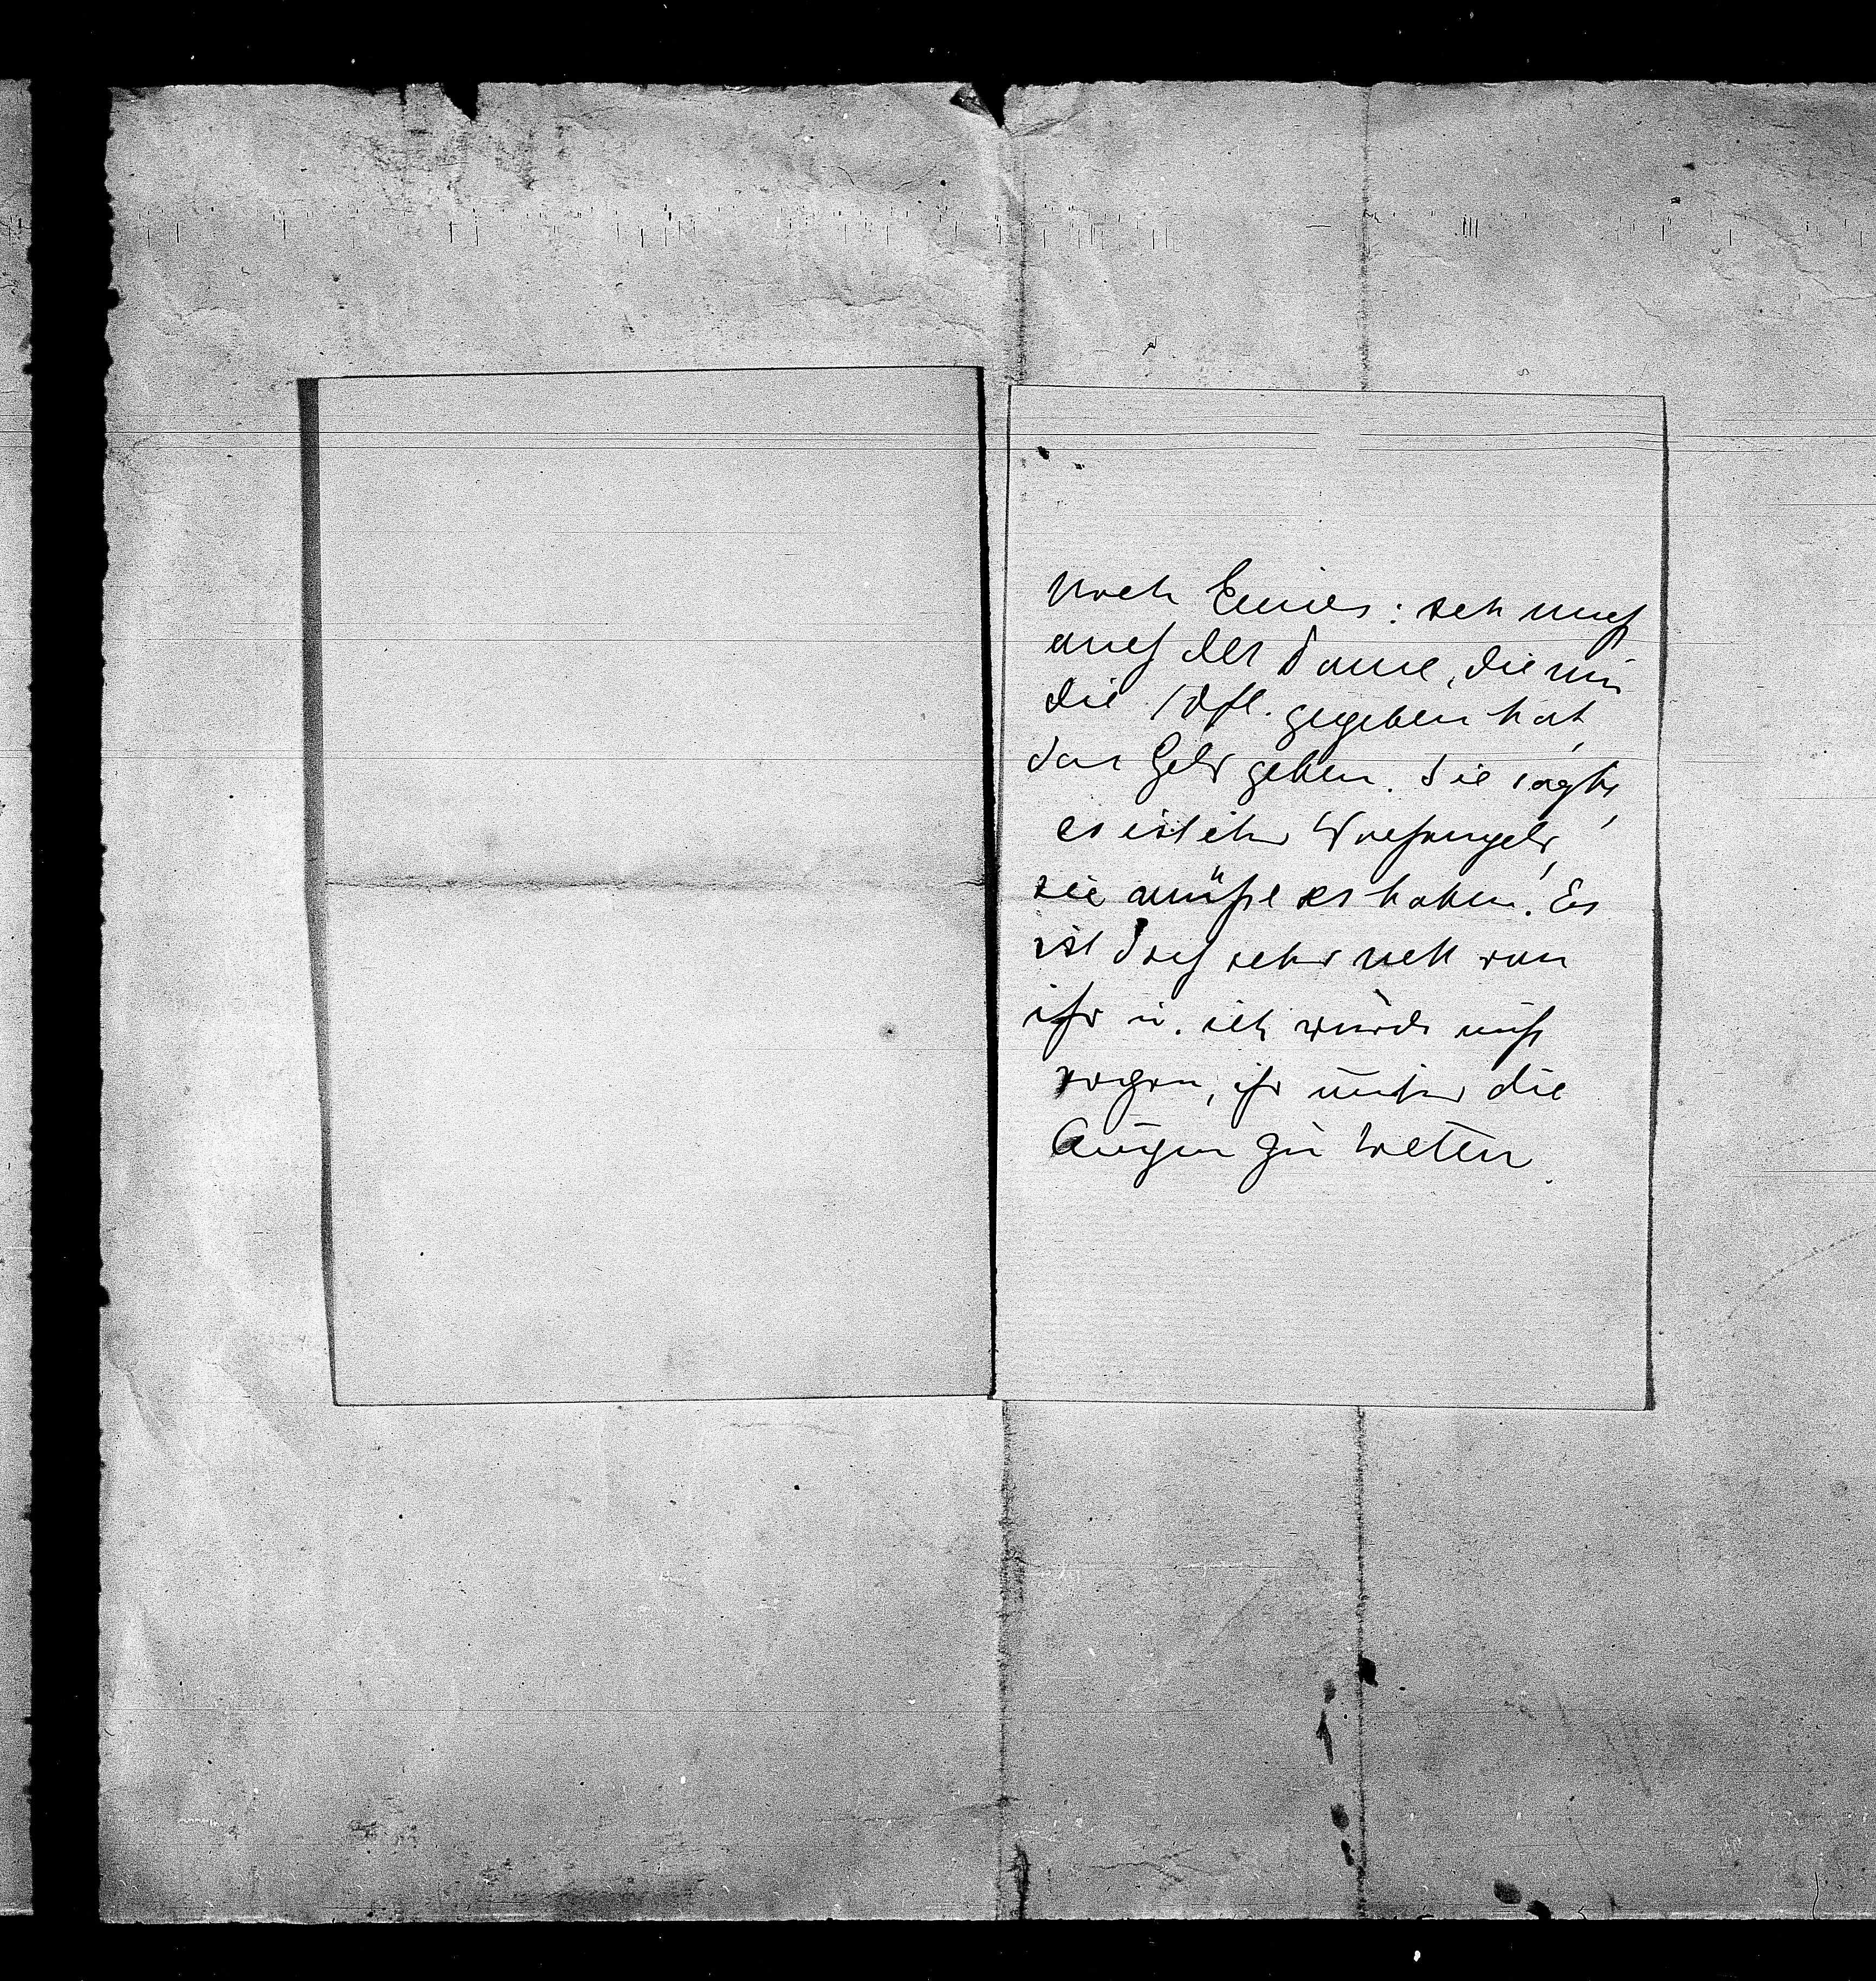 Noch Eines: ich muß
auch der Dame, die mir
die 10fl. gegeben hat,
das Geld geben. Sie sagte,
es ist ihr
sie müße es haben. Es
ist doch sehr nett von
ihr u. ich würde nicht
wagen, ihr unter die
Augen zu treten.